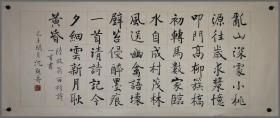 亂山深處小桃
源往歲求漿憶
叩門高柳簇橋
初轉馬數家臨
水自成村茂林
風送幽禽語壞
壁苔侵醉墨痕
一首清詩記今
夕細雲新月耿
黃昏
陸放翁西村詩
一首書